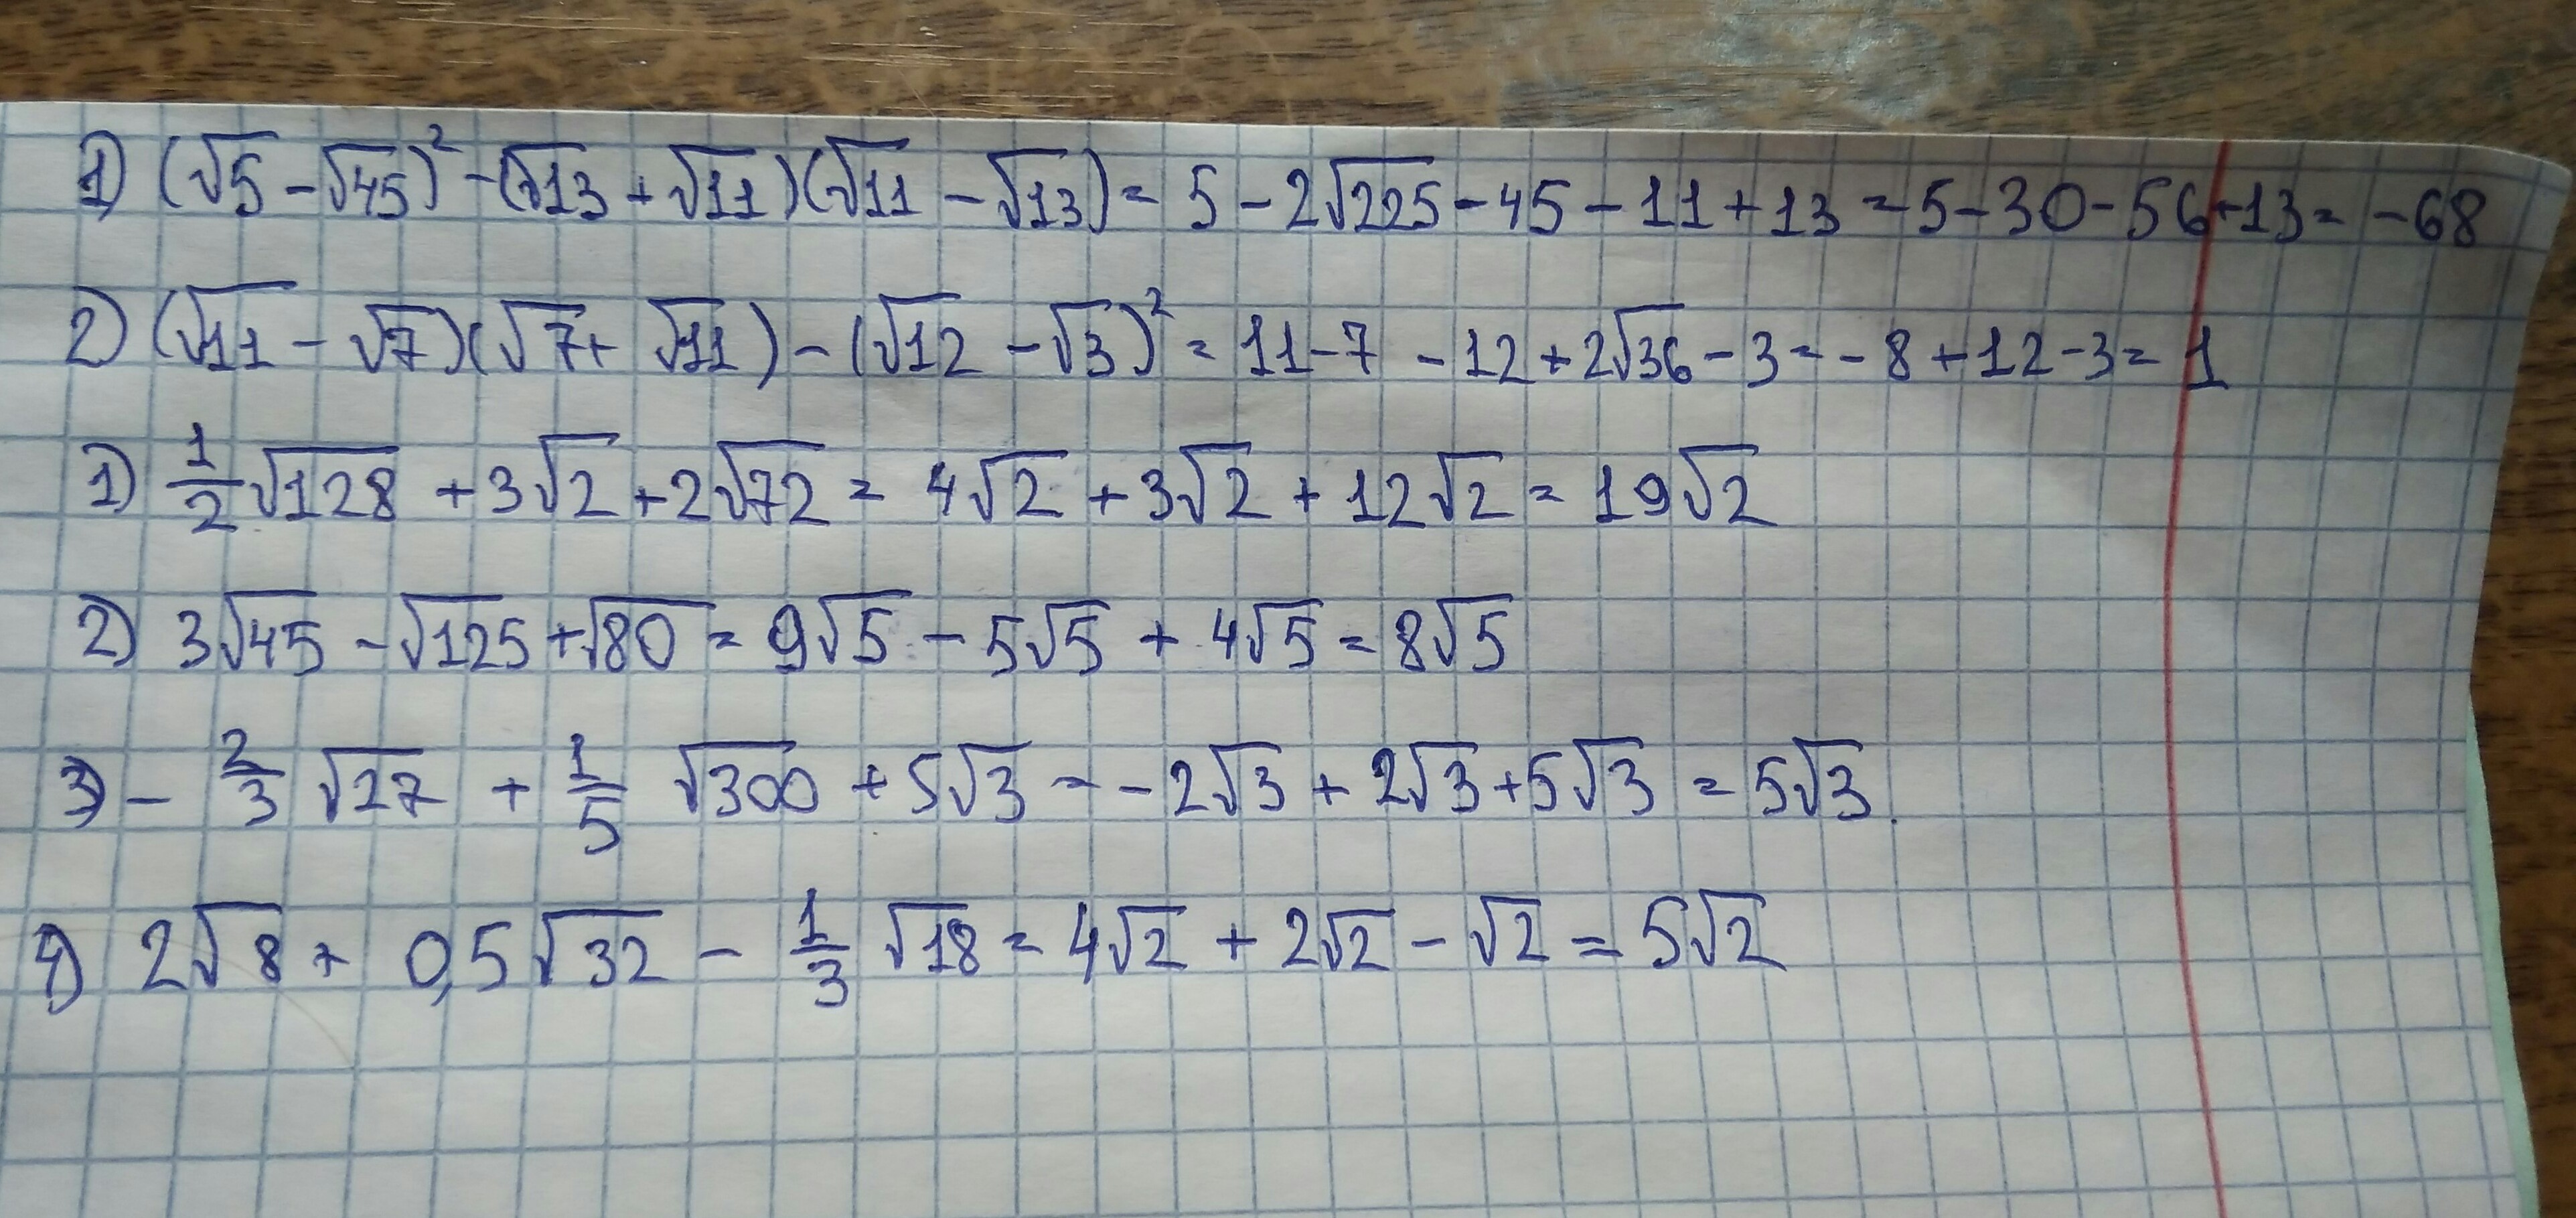 1) (√5 - √45)² - (√13 + √11)(√11 - √13) = 5 - 2√225 - 45 - 11 + 13 = 5 - 30 - 56 + 13 = -68
2) (√11 - √7)(√7 + √11) - (√12 - √3)² = 11 - 7 - 12 + 2√36 - 3 = -8 + 12 - 3 = 1
1) 1/2 √128 + 3√2 + 2√72 = 4√2 + 3√2 + 12√2 = 19√2
2) 3√45 - √125 + √80 = 9√5 - 5√5 + 4√5 = 8√5
3) - 2/3 √27 + 1/5 √300 + 5√3 = -2√3 + 2√3 + 5√3 = 5√3.
4) 2√8 + 0,5√32 - 1/3 √18 = 4√2 + 2√2 - √2 = 5√2